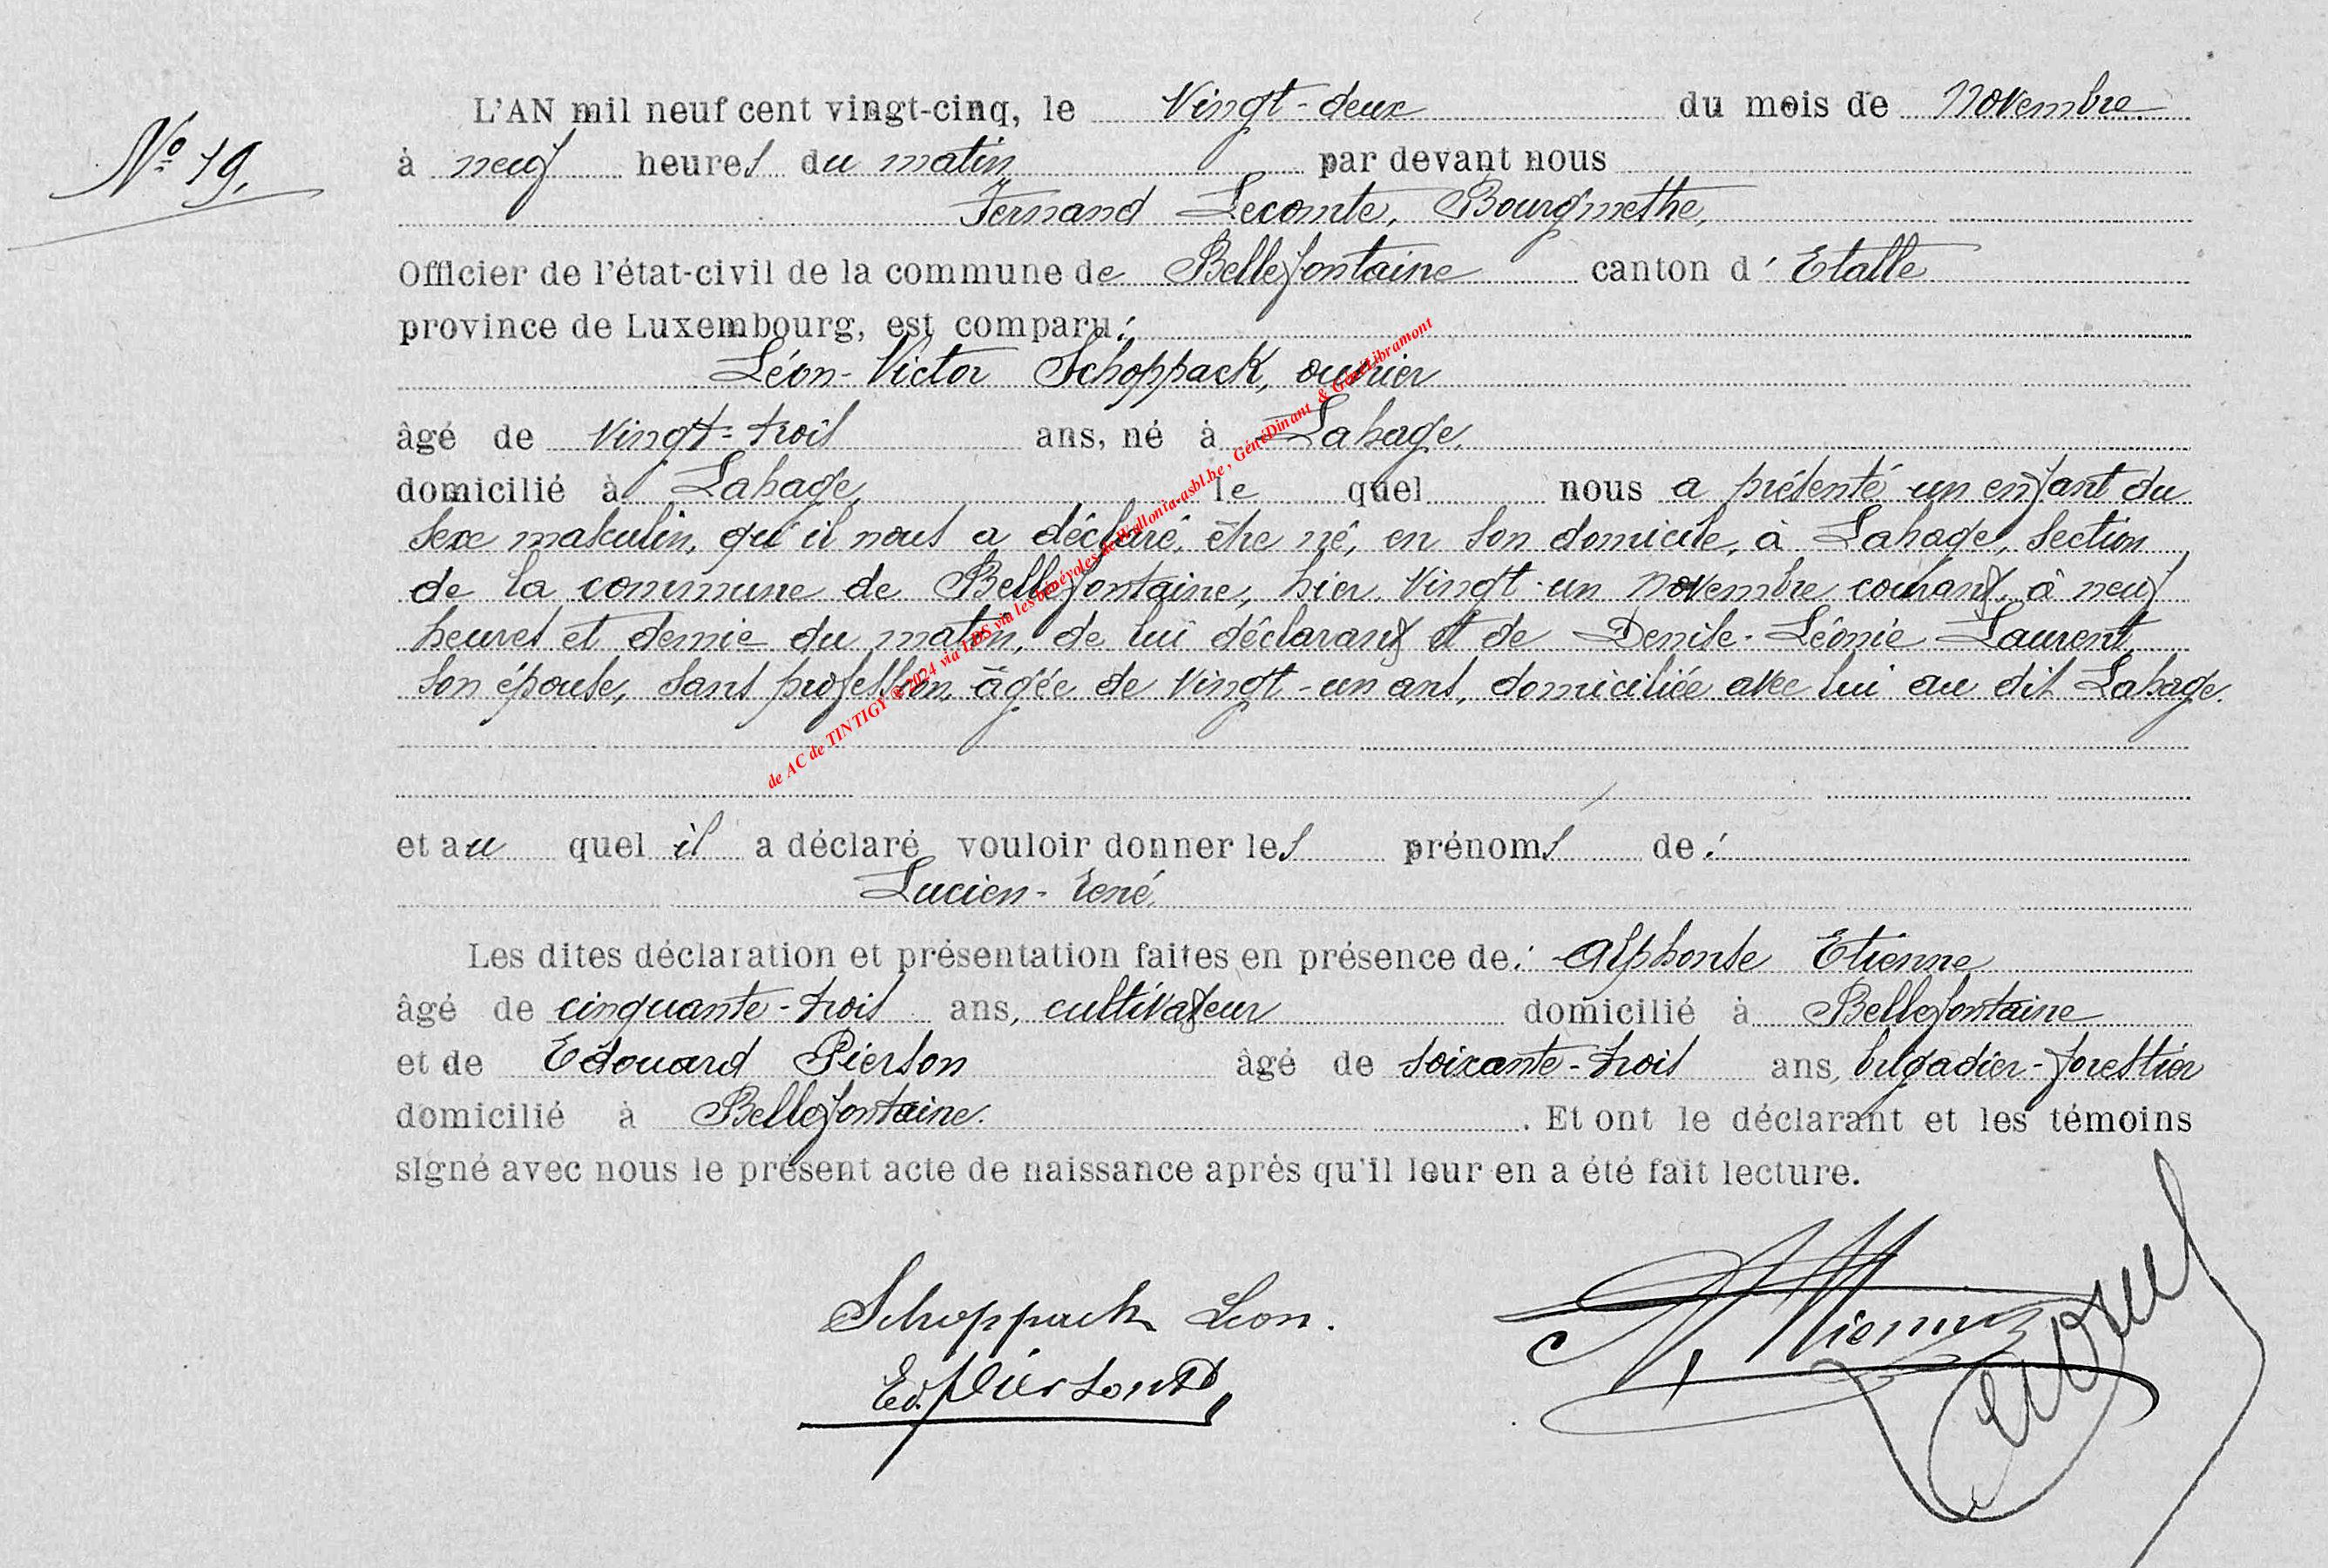 L'AN mil neuf cent vingt-cinq, le Vingt-deux du mois de Novembre
N° 19.
à neuf heures du matin par devant nous
Fernand Lecomte, Bourgmethe,
Officier de l'état-civil de la commune de Bellefontaine canton d' Etalle
province de Luxembourg, est comparu :
Léon-Victor Schoppack, ouvrier
âgé de Vingt-trois ans, né à Lahage,
domicilié à Lahage, le quel nous a présenté un enfant du
sexe masculin, qu'il nous a déclaré, être né, en son domicile, à Lahage, section
de la commune de Bellefontaine, hier, Vingt-un Novembre courant, à neuf
heures et demie du matin, de lui déclarant et de Denise-Léonie Laurent,
son épouse, sans profession, âgée de Vingt-un ans, domiciliée avec lui au dit Lahage.
et au quel il a déclaré vouloir donner les prénoms de :
Lucien-René,
Les dites déclaration et présentation faites en présence de : Alphonse Etienne
âgé de cinquante-trois ans, cultivateur domicilié à Bellefontaine
et de Edouard Pierson âgé de soixante-trois ans, brigadier-forestier
domicilié à Bellefontaine. . Et ont le déclarant et les témoins
signé avec nous le présent acte de naissance après qu'il leur en a été fait lecture.
Schoppack Leon.
Ed. Pierson
de AC de TINTIGY @ 2024 via LDS via les bénévoles de Wallonia-asbl.be , GénéDinant & GénéLibramont